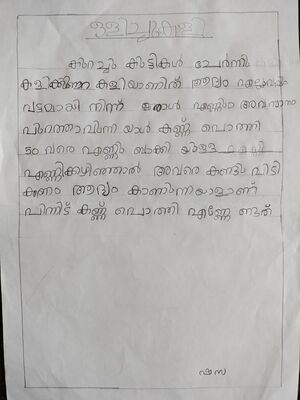 ഒളിച്ചുകളി
കുറച്ചു കുട്ടികൾ ചേർന്നു
കളിക്കുന്ന കളിയാണിത് ആദ്യം എല്ലാവരും
വട്ടമായി നിന്ന് ഒരാൾ എണ്ണും അവസാനം
പുറത്താവുന്ന യാൾ കണ്ണ് പൊത്തി
50 വരെ എണ്ണും ബാക്കി യുള്ള
എണ്ണിക്കഴിഞ്ഞാൽ അവരെ കണ്ടു പിടി
ക്കണം ആദ്യം കാണുന്നയാളാണ്
പിന്നിട് കണ്ണ് പൊത്തി എണ്ണേ ണ്ടത്
ഷസ